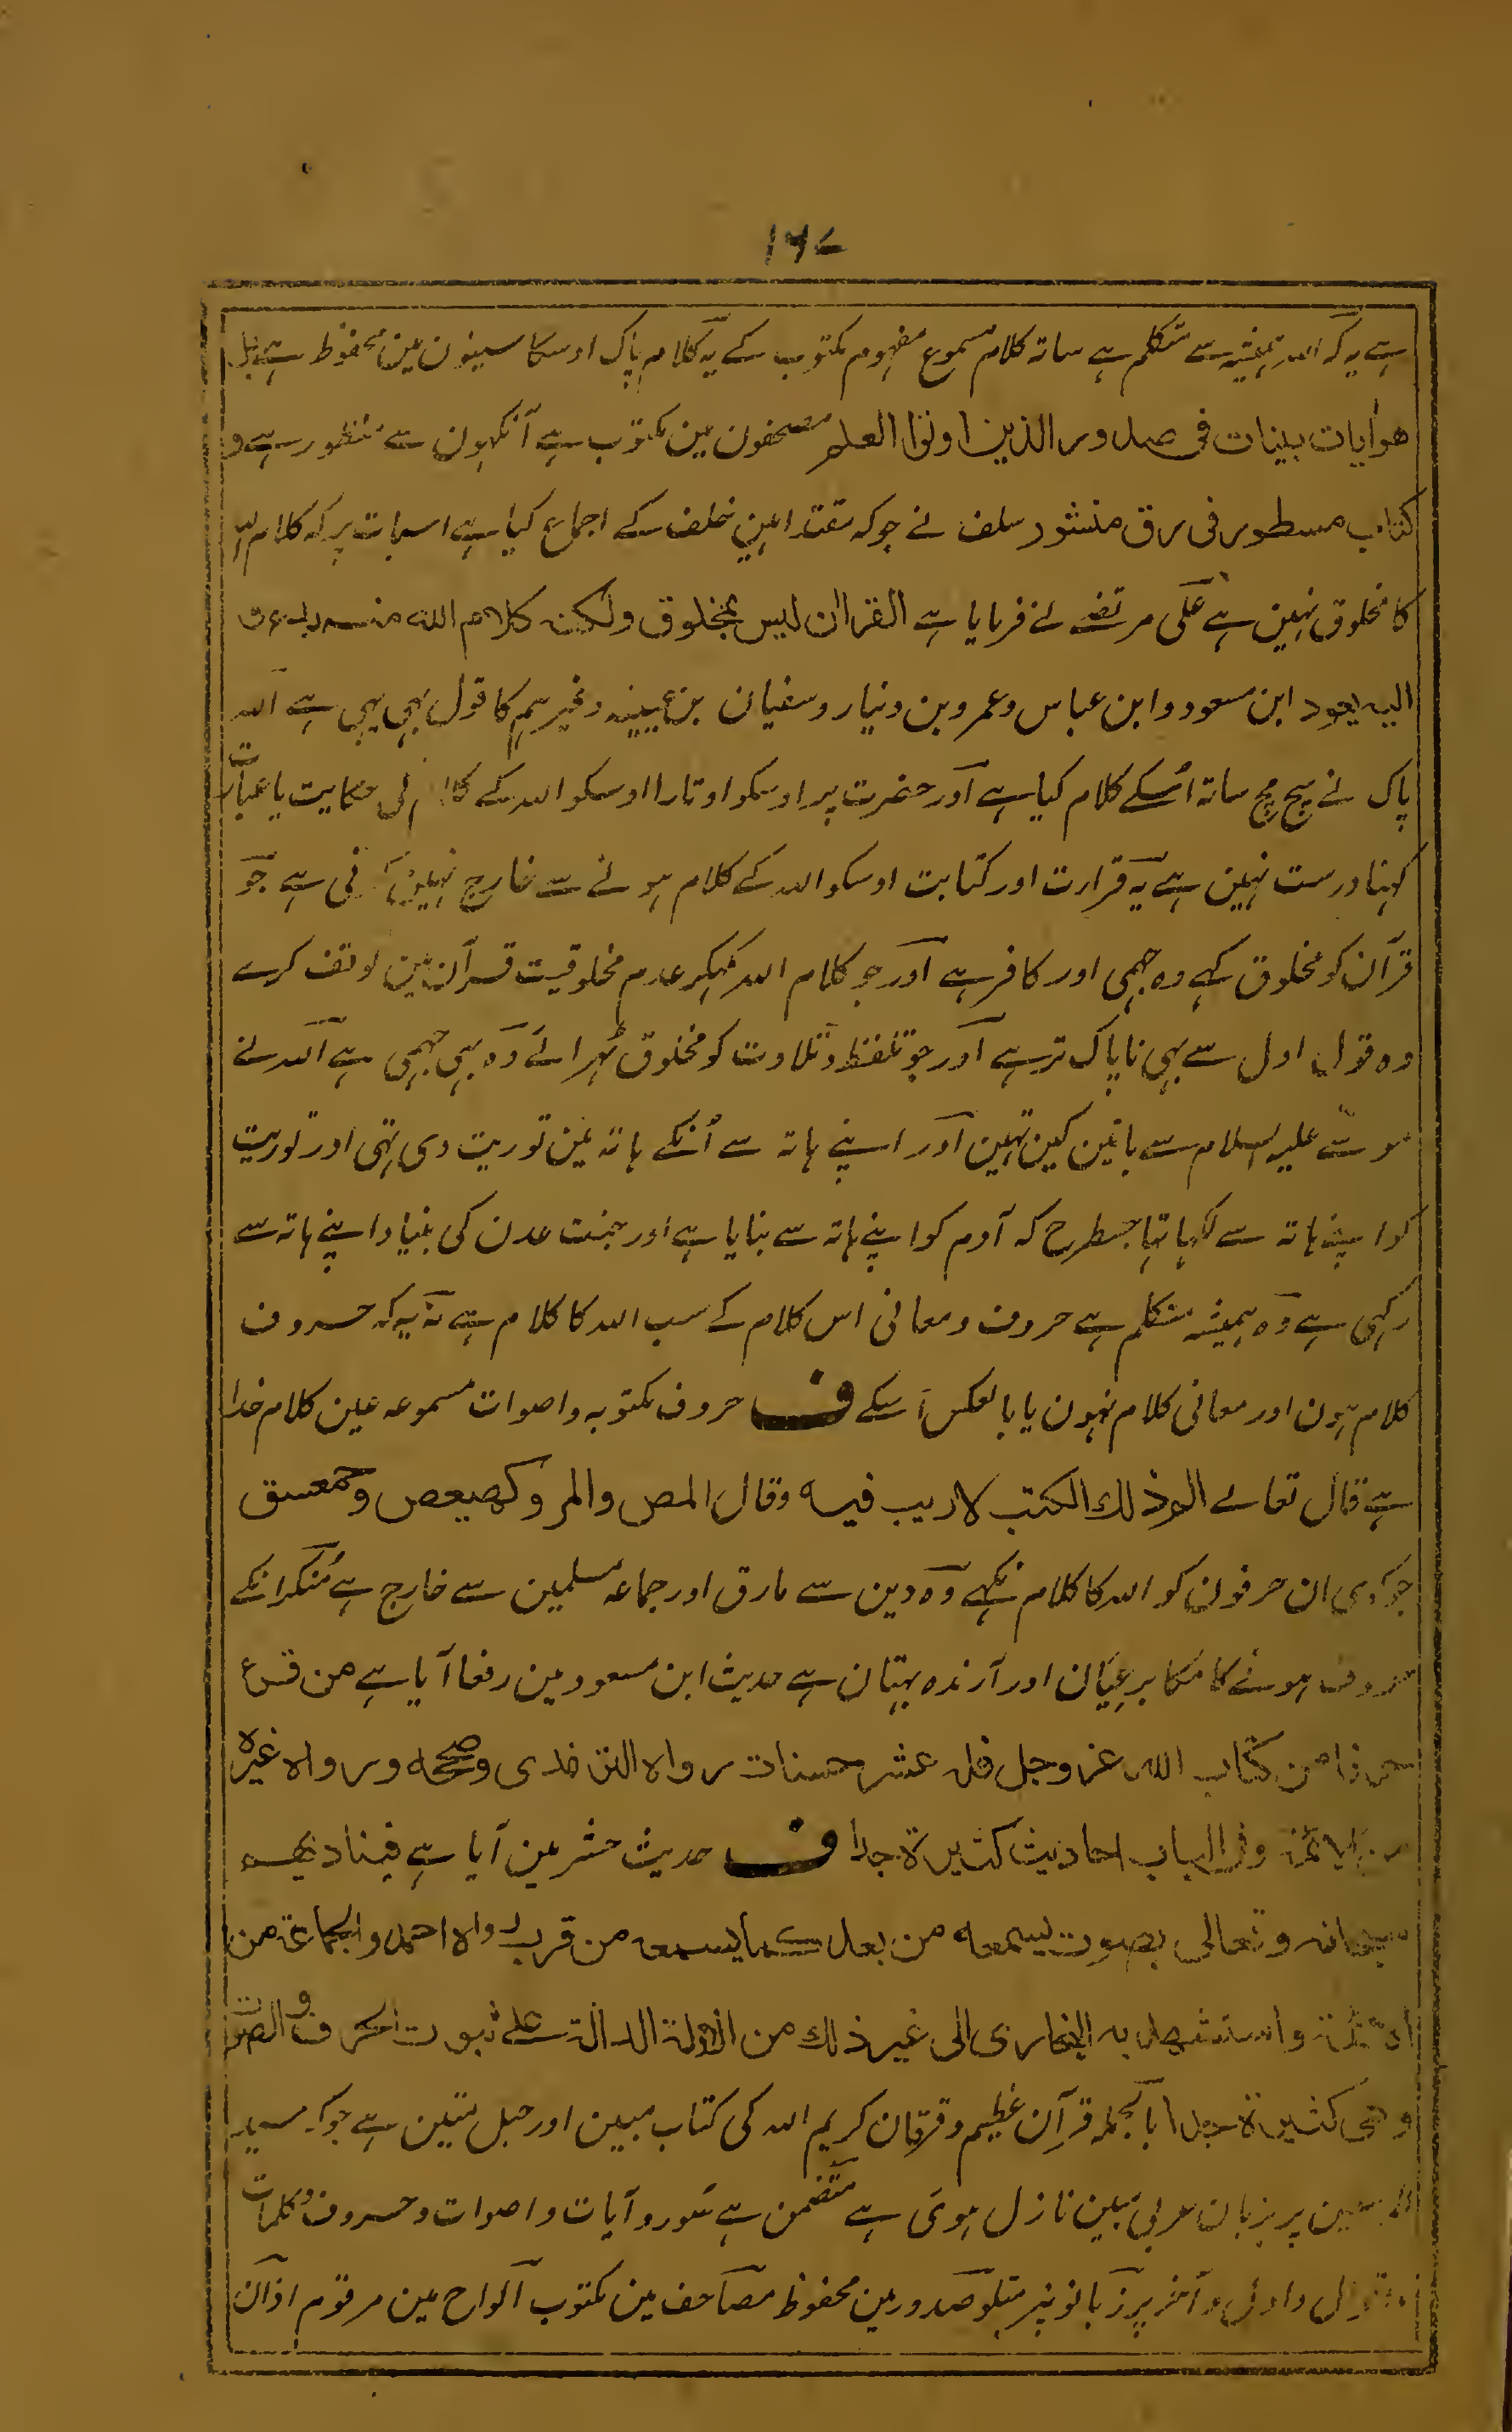 ۱۶۷
ہے یہ کہ اللہ ہمیشہ سے متکلم ہے ساتہ کلام مسموع مفہوم مکتوب کے یہ کلام پاک اوسکا سینون مین محفوظ ہے بل
هو اٰیات بینات فی صدور الذین اوتوا العلم مصحفون مین مکتوب ہے آنکہون سے منظور ہے و
کتاب مسطور فی رق منشور سلف نے جو کہ مقتدا ہین خلف کے اجماع کیا ہے اسبات پر کہ کلام اللہ
کا مخلوق نہین ہے علی مرتضے نے فرمایا ہے القران لیس بمخلوق ولکن کلام الله منه بدء و
الیه یعود ابن مسعود و ابن عباس و عمرو بن دینار و سفیان بن عیینہ وغیرہم کا قول بہی یہی ہے اللہ
پاک نے سچ مچ ساتہ اُسکے کلام کیا ہے اور حضرت پر اوسکو اوتارا اوسکو اللہ کے کلام کی حکایت یا عبارت
کہنا درست نہین ہے یہ قرارت اور کتابت اوسکو اللہ کے کلام ہونے سے خارج نہین کرتی ہے جو
قرآن کو مخلوق کہے وہ جہمی اور کافر ہے اور جو کلام اللہ کہکر عدم مخلوقیت قرآن مین توقف کرے
وہ قول اول سے بہی ناپاک تر ہے اور جو تلفظ و تلاوت کو مخلوق ٹہرائے وہ بہی جہمی ہے اللہ نے
موسیٰ علیہ السلام سے باتین کین تہین اور اپنے ہاتہ سے اُنکے ہاتہ مین توریت دی تہی اور توریت
کو اپنے ہاتہ سے لکہا تہا جسطرح کہ آدم کو اپنے ہاتہ سے بنایا ہے اور جنت عدن کی بنیاد اپنے ہاتہ سے
رکہی ہے وہ ہمیشہ متکلم ہے حروف و معانی اس کلام کے سب اللہ کا کلام ہے نہ یہ کہ حروف
کلام ہون اور معانی کلام نہون یا بالعکس اسکے ف حروف مکتوبہ و اصوات مسموعہ عین کلام خدا
ہے قال تعالے الم ذلك الکتب لا ریب فیه وقال المص والمر وکهیعص وحمعسق
جو کوی ان حرفون کو اللہ کا کلام نکہے وہ دین سے مارق اور جماعہ مسلمین سے خارج ہے منکر انکے
حروف ہونے کا مکابر عیان اور آرندہ بہتان ہے حدیث ابن مسعود مین رفعا آیا ہے من قرء
حرفا من کتاب الله عز وجل فله عشر حسنات رواه الترمذی وصححه ورواه غیره
من الائمة وفی الباب احادیث کثیرة جدا ف حدیث حشر مین آیا ہے فینادیهم
سبحانه وتعالی بصوت لیسمعه من بعد کما یسمعه من قرب رواه احمد والجماعة من
الائمة واستشهد به البخاری الی غیر ذلك من الادلة الدالة علے ثبوت الحرف والصوت
وهی کثیرة جدا بالجملہ قرآن عظیم و فرقان کریم اللہ کی کتاب مبین اور حبل متین ہے جو کہ سید
المرسلین پر بزبان عربی مبین نازل ہوئی ہے متضمن ہے سور و آیات و اصوات و حروف و کلمات
و اول و آخر پر زبانونپر متلو صدور مین محفوظ مصاحف مین مکتوب الواح مین مرقوم اذان